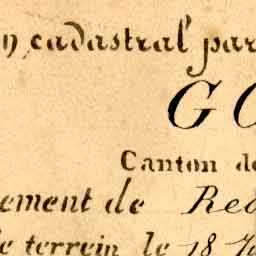 n cadastral par
GO
Canton de
ement de Red
de terrein le 18 J